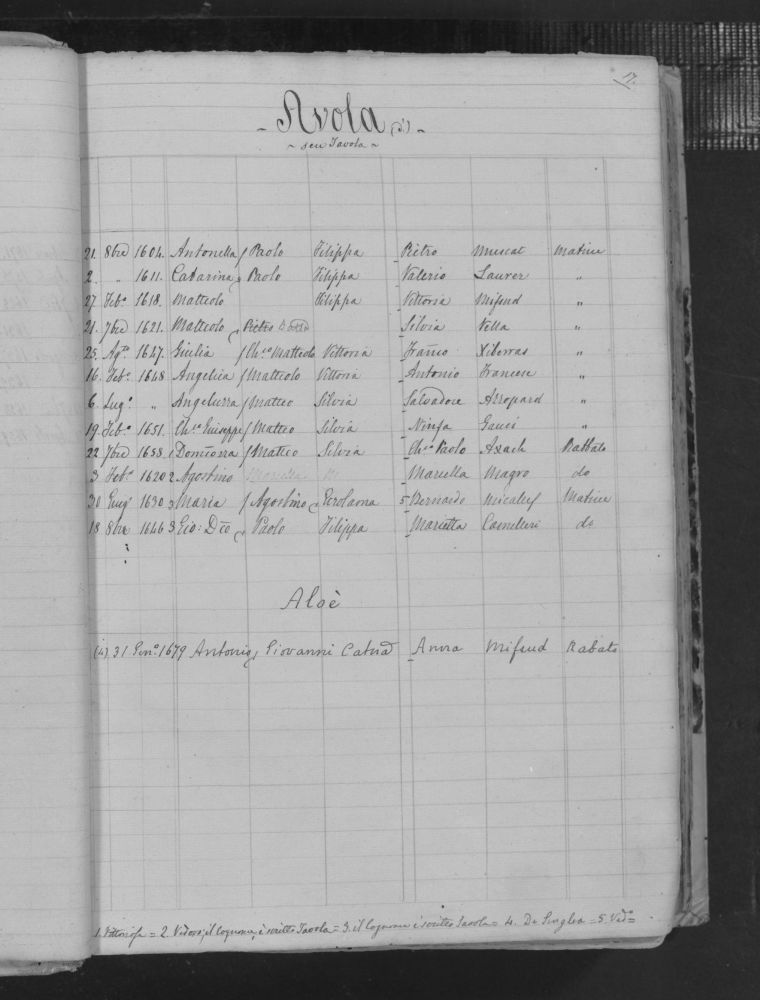 17.
~ Avola (d') ~
~ seu Tavola ~
21. 8bre 1604. Antonella f Paolo Filippa Pietro Muscat Matrice
2. " 1611. Catarina f Paolo Filippa Valerio Laurer "
27 Feb.o 1618. Matteolo Filippa Vittoria Mifsud "
21. 7bre 1621. Matteolo f Pietro Silvia Vella "
25. Ag.to 1647. Giulia f Ch.co Matteolo Vittoria Franco Xiberras "
16. Feb.o 1648 Angelica f Matteolo Vittoria Antonio Francese "
6. Lug.o " Angeluzza f Matteo Silvia Salvadore Azzopard "
19. Feb.o 1651. Ch.co Giuseppe f Matteo Silvia Ninfa Gauci "
22 7bre 1653. Domcozza f Matteo Silvia Ch.co Paolo Axach Rabbato
3 Feb.o 1620 2 Agostino Mariella Magro do
30 Giug.o 1630 3 Maria f Agostino Gerolama 5 Bernardo Micallef Matrice
18 8bre 1646 3 Gio: Dco f Paolo Filippa Marietta Camilleri do
Aloè
(4) 31 Gen.o 1679 Antonio f Giovanni Catna Anna Mifsud Rabato
1. Vittoriosa = 2. Vedovo, il Cognome è scritto Tavola = 3. il Cognome è scritto Tavola = 4. Da Senglea = 5. Ved.o =